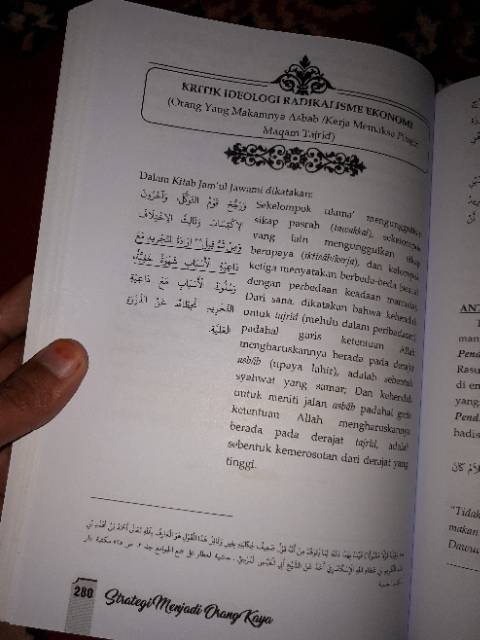 KRITIK IDEOLOGI RADIKALISME EKONOMI
(Orang Yang Makamnya Asbab /Kerja Memaksa Pingin
Maqam Tajrid)
Dalam Kitab Jam'ul Jawami dikatakan:
وَرَجَّحَ قَوْمٌ التَّوَكُّلَ، وَآخَرُونَ
الِاكْتِسَابَ، وَثَالِثٌ الِاخْتِلَافَ
وَمِنْ ثَمَّ قِيلَ: إِرَادَةُ التَّجْرِيدِ مَعَ
دَاعِيَةِ الْأَسْبَابِ شَهْوَةٌ خَفِيَّةٌ،
وَسُلُوكُ الْأَسْبَابِ مَعَ دَاعِيَةِ
التَّجْرِيدِ انْحِطَاطٌ عَنِ الذُّرْوَةِ
العَلِيَّةِ.
Sekelompok ulama' mengunggulkan
sikap pasrah (tawakkal), sekelompok
yang lain mengunggulkan sikap
berupaya (iktisab/kerja), dan kelompok
ketiga menyatakan berbeda-beda sesuai
dengan perbedaan keadaan manusia.
Dari sana, dikatakan bahwa kehendak
untuk tajrid (melulu dalam peribadatan)
padahal garis ketentuan Allah
mengharuskannya berada pada derajat
asbâb (upaya lahir), adalah sebentuk
syahwat yang samar; Dan kehendak
untuk meniti jalan asbâb padahal garis
ketentuan Allah mengharuskannya
berada pada derajat tajrid, adalah
sebentuk kemerosotan dari derajat yang
tinggi.
280
Strategi Menjadi Orang Kaya
AN
man
Pend
Rasu
di en
yang
Pend
hadis
"Tidak
makan
Dawud